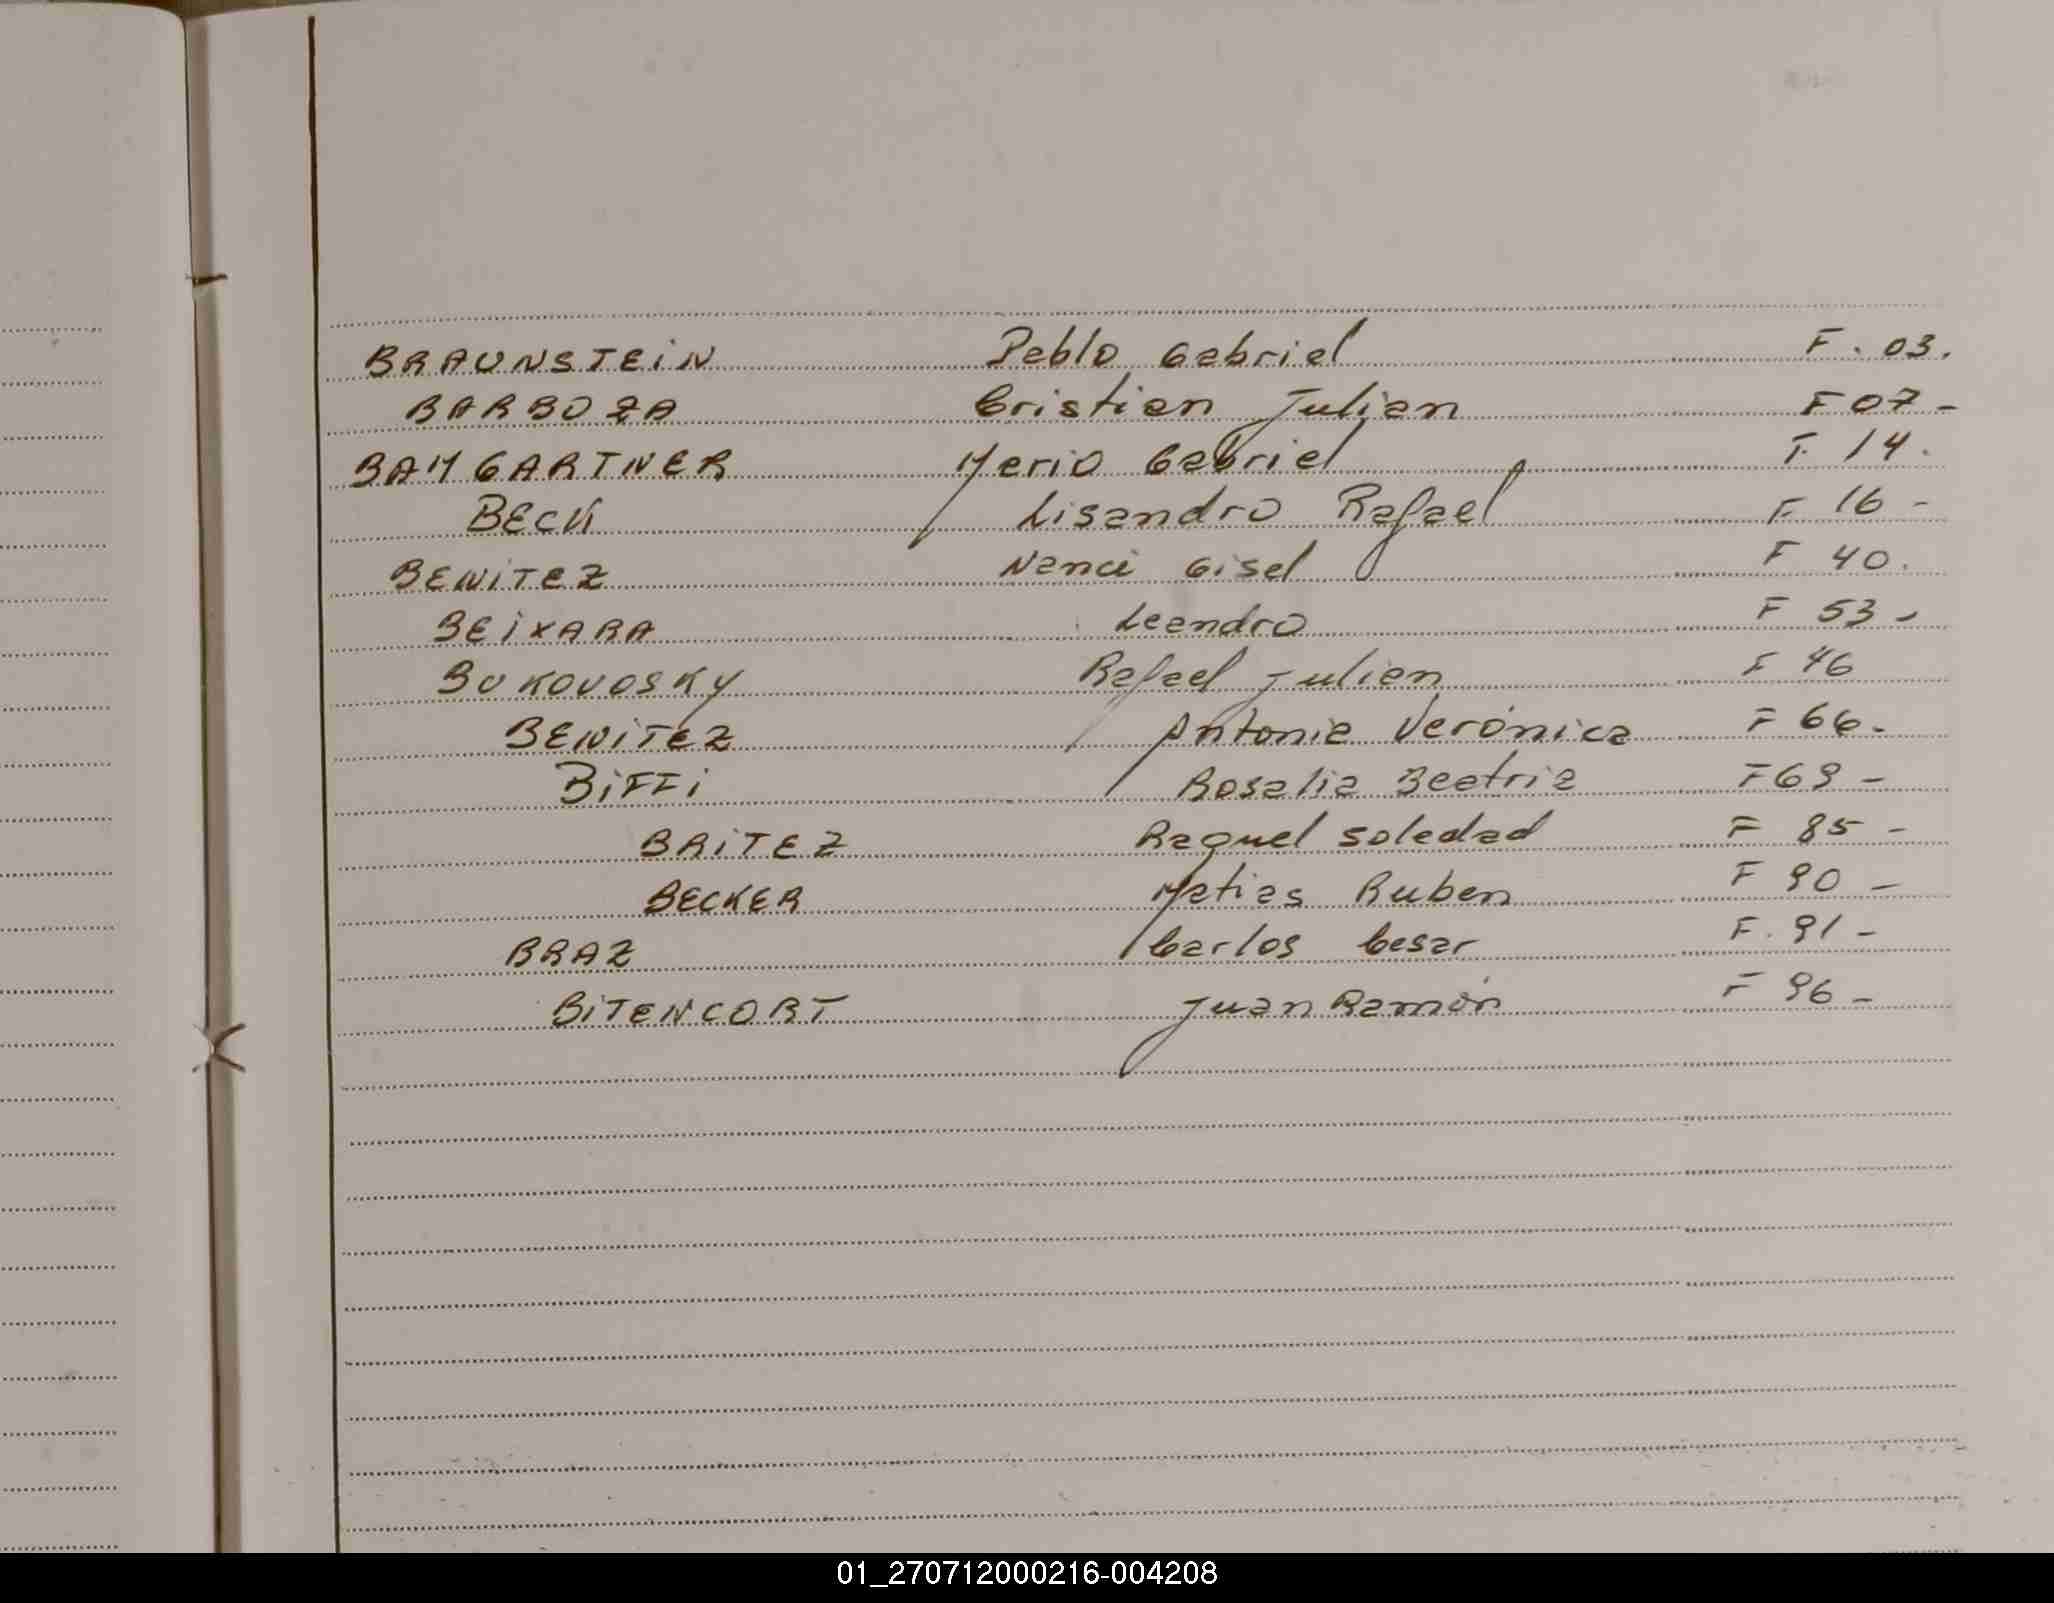 BRAUNSTEIN Pablo Gabriel F. 03.
BARBOZA Cristian Julian F 07-
BAMGARTNER Mario Gabriel F. 14.
BECK Lisandro Rafael F 16-
BENITEZ Nanci Gisel F 40.
BEIXARA Leandro F 53-
BUKOVOSKY Rafael Julian F 46
BENITEZ Antonia Verónica F 66.
BIFFI Rosalia Beatriz F 69-
BRITEZ Raquel Soledad F 85-
BECKER Matias Ruben F 90-
BRAZ Carlos Cesar F. 91-
BITENCORT Juan Ramón F 96-
01_270712000216-004208